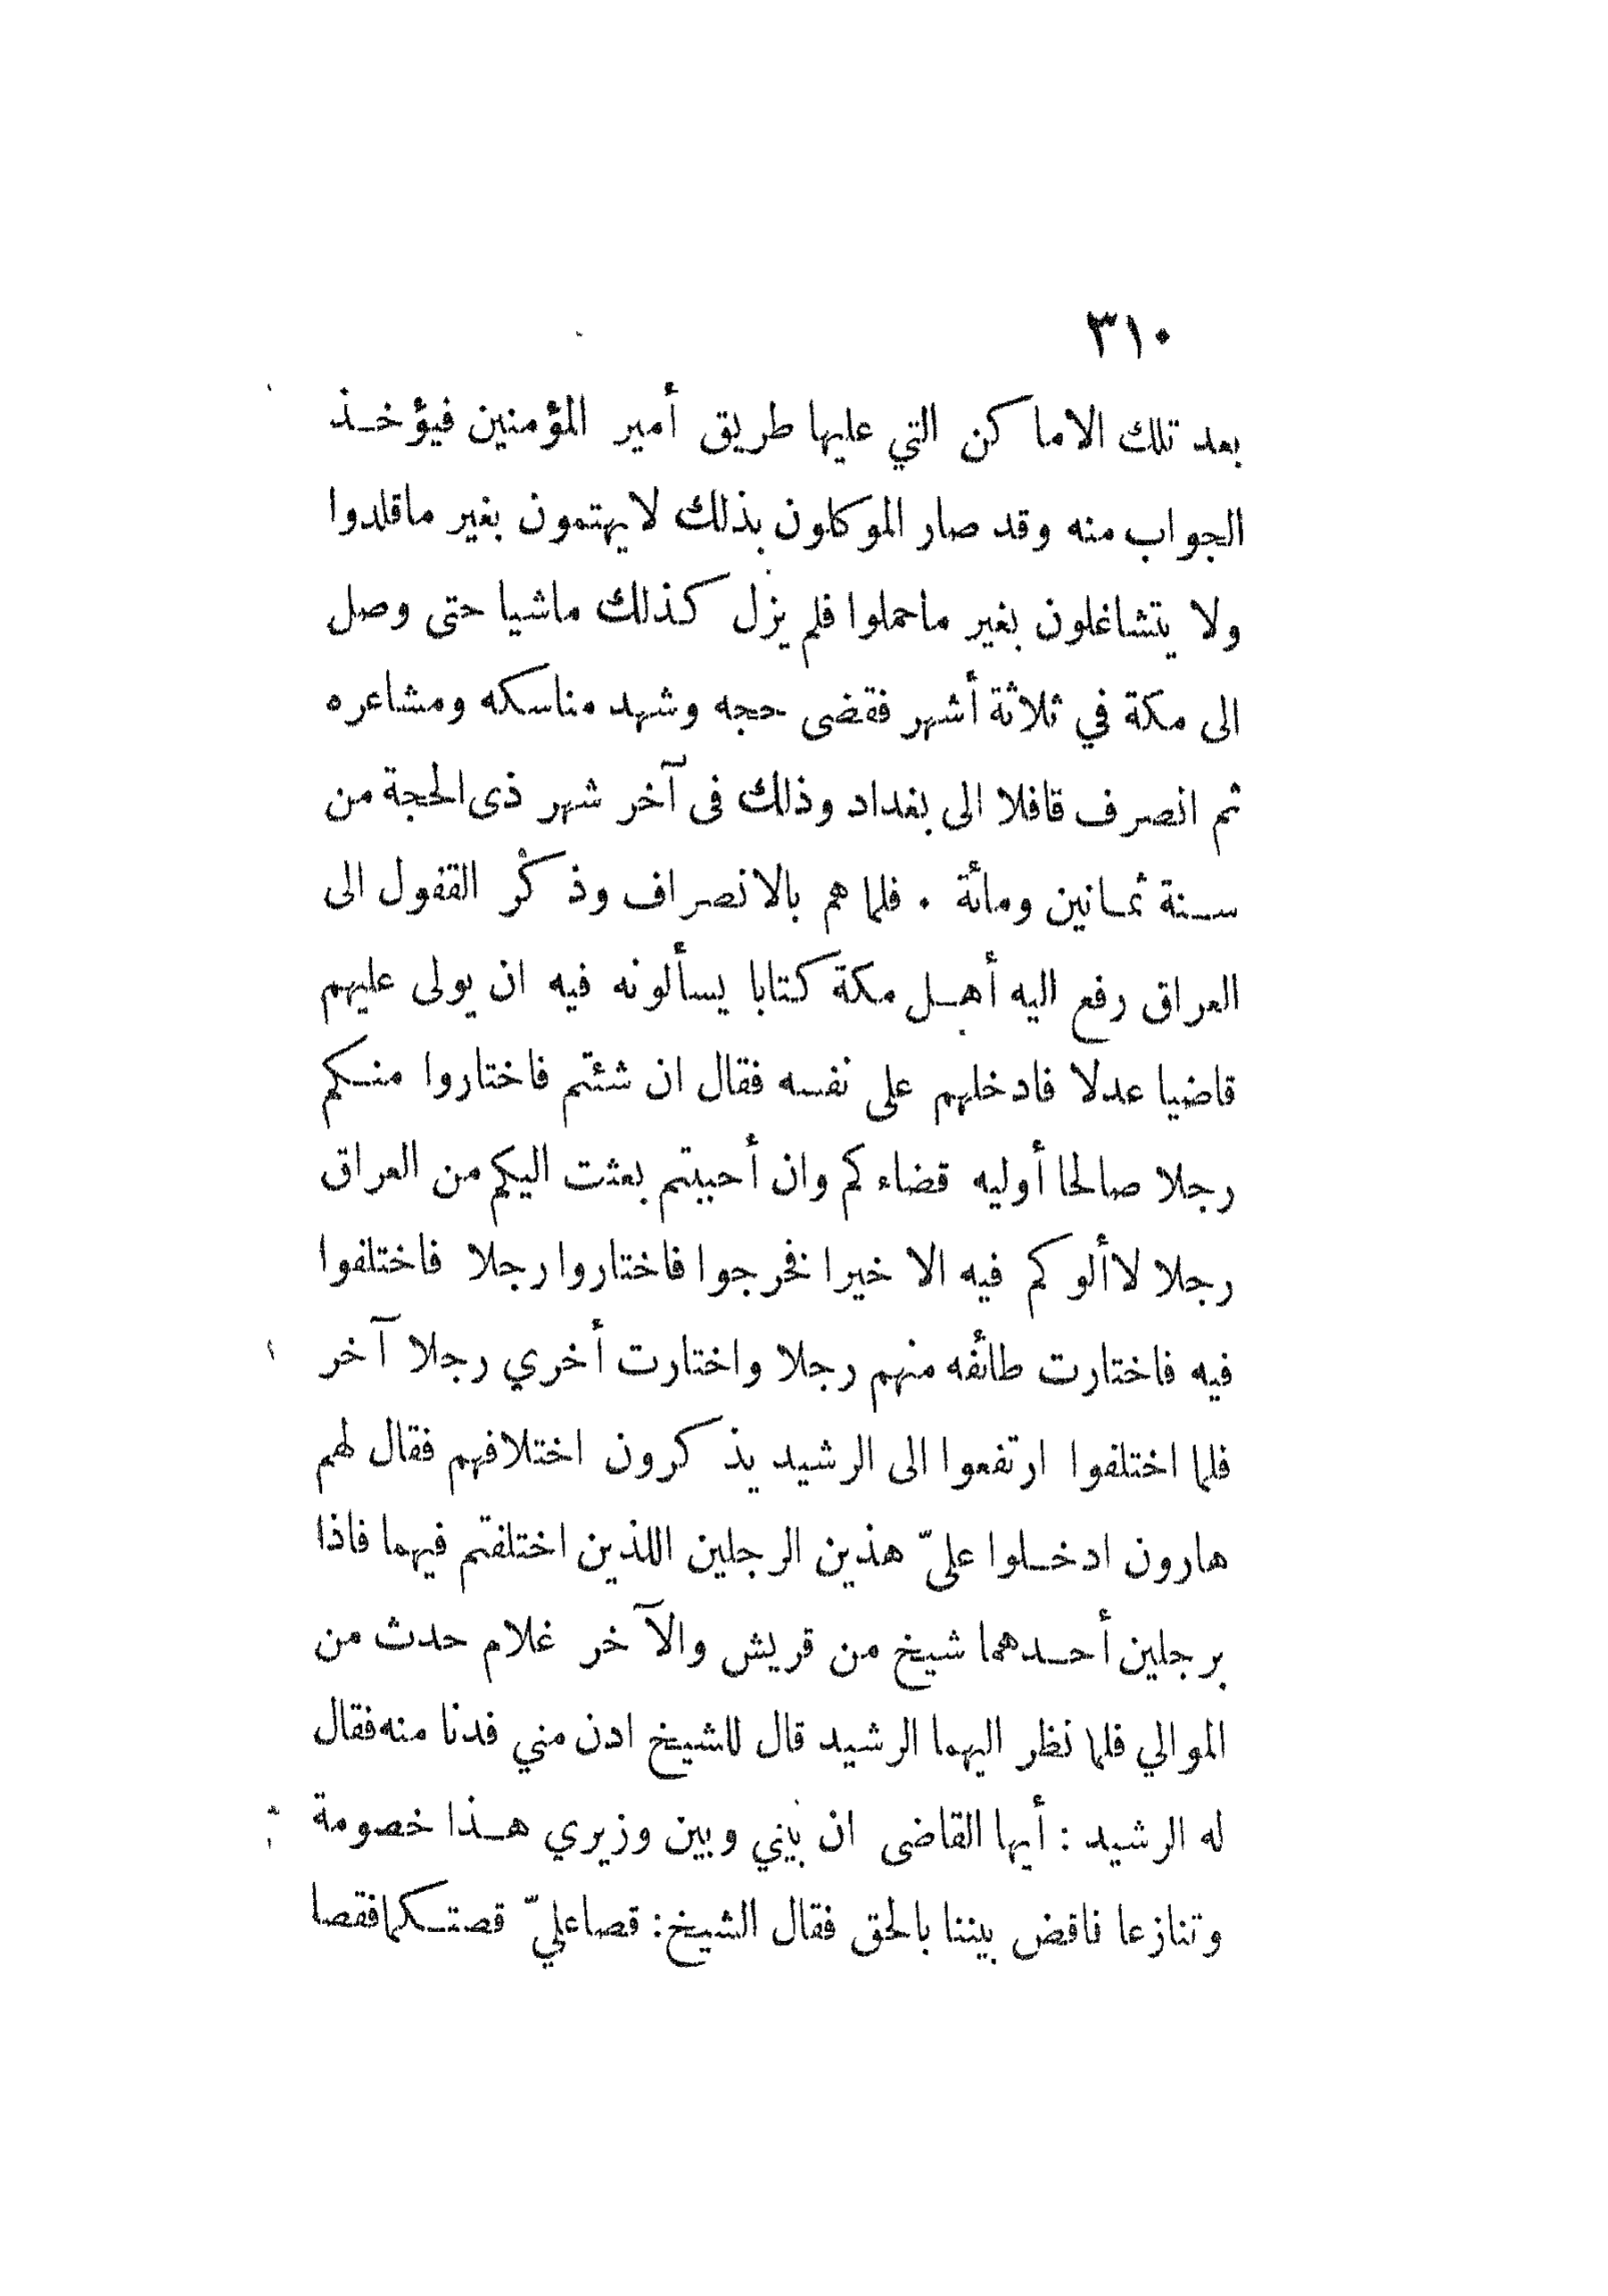 ٣١٠
بعد تلك الاماكن التي عليها طريق أمير المؤمنين فيؤخذ
الجواب منه وقد صار الموكلون بذلك لايهتمون بغير ماقلدوا
ولا يتشاغلون بغير ماحملوا فلم يزل كذلك ماشيا حتى وصل
الى مكة في ثلاثة أشهر فقضى حجه وشهد مناسكه ومشاعره
ثم انصرف قافلا الى بغداد وذلك فى آخر شهر ذى الحجة من
سنة ثمانين ومائة . فلما هم بالانصراف وذكْر القفول الى
العراق رفع اليه أهل مكة كتابا يسألونه فيه ان يولى عليهم
قاضيا عدلا فادخلهم على نفسه فقال ان شئتم فاختاروا منكم
رجلا صالحا أوليه قضاءكم وان أحببتم بعثت اليكم من العراق
رجلا لاألوكم فيه الا خيرا فخرجوا فاختاروا رجلا فاختلفوا
فيه فاختارت طائفه منهم رجلا واختارت أخري رجلا آخر
فلما اختلفوا ارتفعوا الى الرشيد يذكرون اختلافهم فقال لهم
هارون ادخلوا علىّ هذين الرجلين اللذين اختلفتم فيهما فاذا
برجلين أحدهما شيخ من قريش والآخر غلام حدث من
الموالي فلما نظر اليهما الرشيد قال للشيخ ادن مني فدنا منه فقال
له الرشيد : أيها القاضى ان بيني وبين وزيري هذا خصومة
وتنازعا فاقض بيننا بالحق فقال الشيخ: قصا عليّ قصتكما فقصا